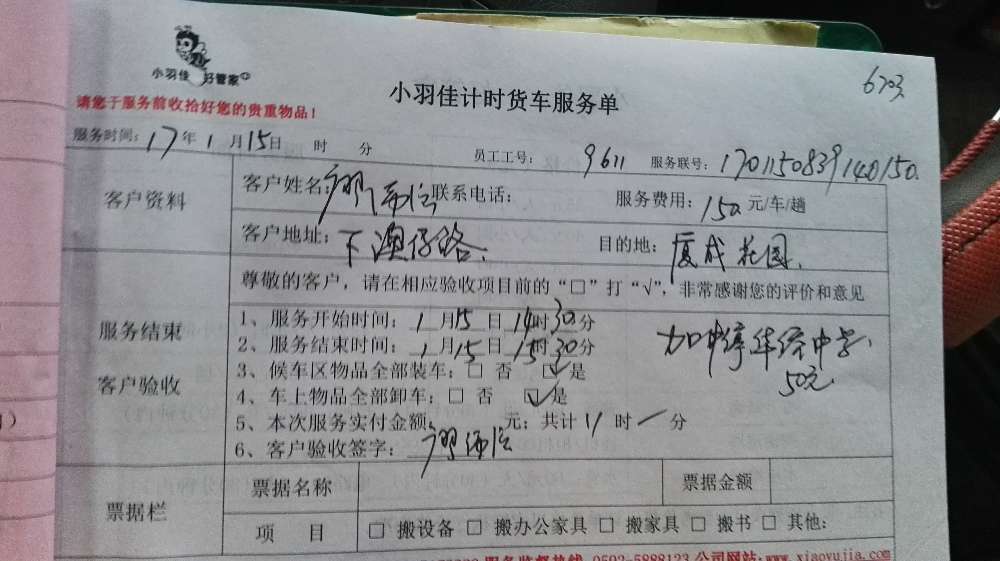 小羽佳 好管家
6703
小羽佳计时货车服务单
请您于服务前收拾好您的贵重物品！
服务时间：17年1月15日 时 分 员工工号：9611 服务联号：1701150839140150
客户资料
客户姓名： 联系电话： 服务费用：150元/车/趟
客户地址：下澳仔路 目的地：厦成花园
服务结束
客户验收
尊敬的客户，请在相应验收项目前的“□”打“√”，非常感谢您的评价和意见
1、服务开始时间：1月15日14时30分
2、服务结束时间：1月15日15时30分
3、候车区物品全部装车：□ 否 ☑是
4、车上物品全部卸车：□ 否 ☑是
5、本次服务实付金额： 元；共计1/时/分
6、客户验收签字：
50元
票据栏
票据名称 票据金额
项 目 □ 搬设备 □ 搬办公家具 □ 搬家具 □ 搬书 □ 其他：
服务监督热线 0592-5888123 公司网站：www.xiaoyujia.com